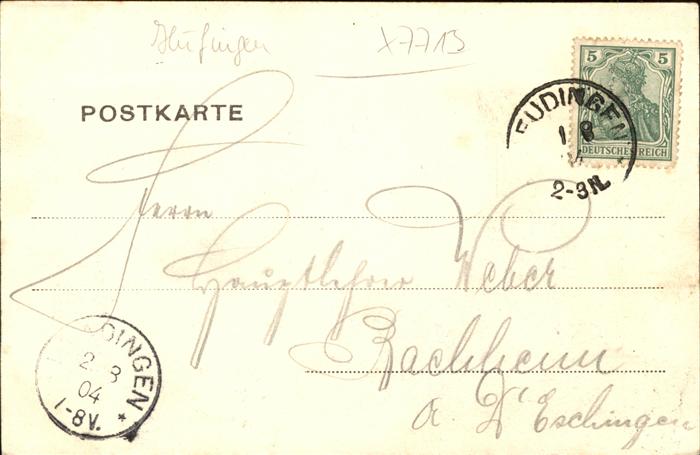 Hüfingen X7713
POSTKARTE
5 5
DEUTSCHES REICH
1 8
2-3N.
Herrn
Hauptlehrer Weber
Bachheim
a. D'Eschingen
DINGEN
2 8
04
7-8V.